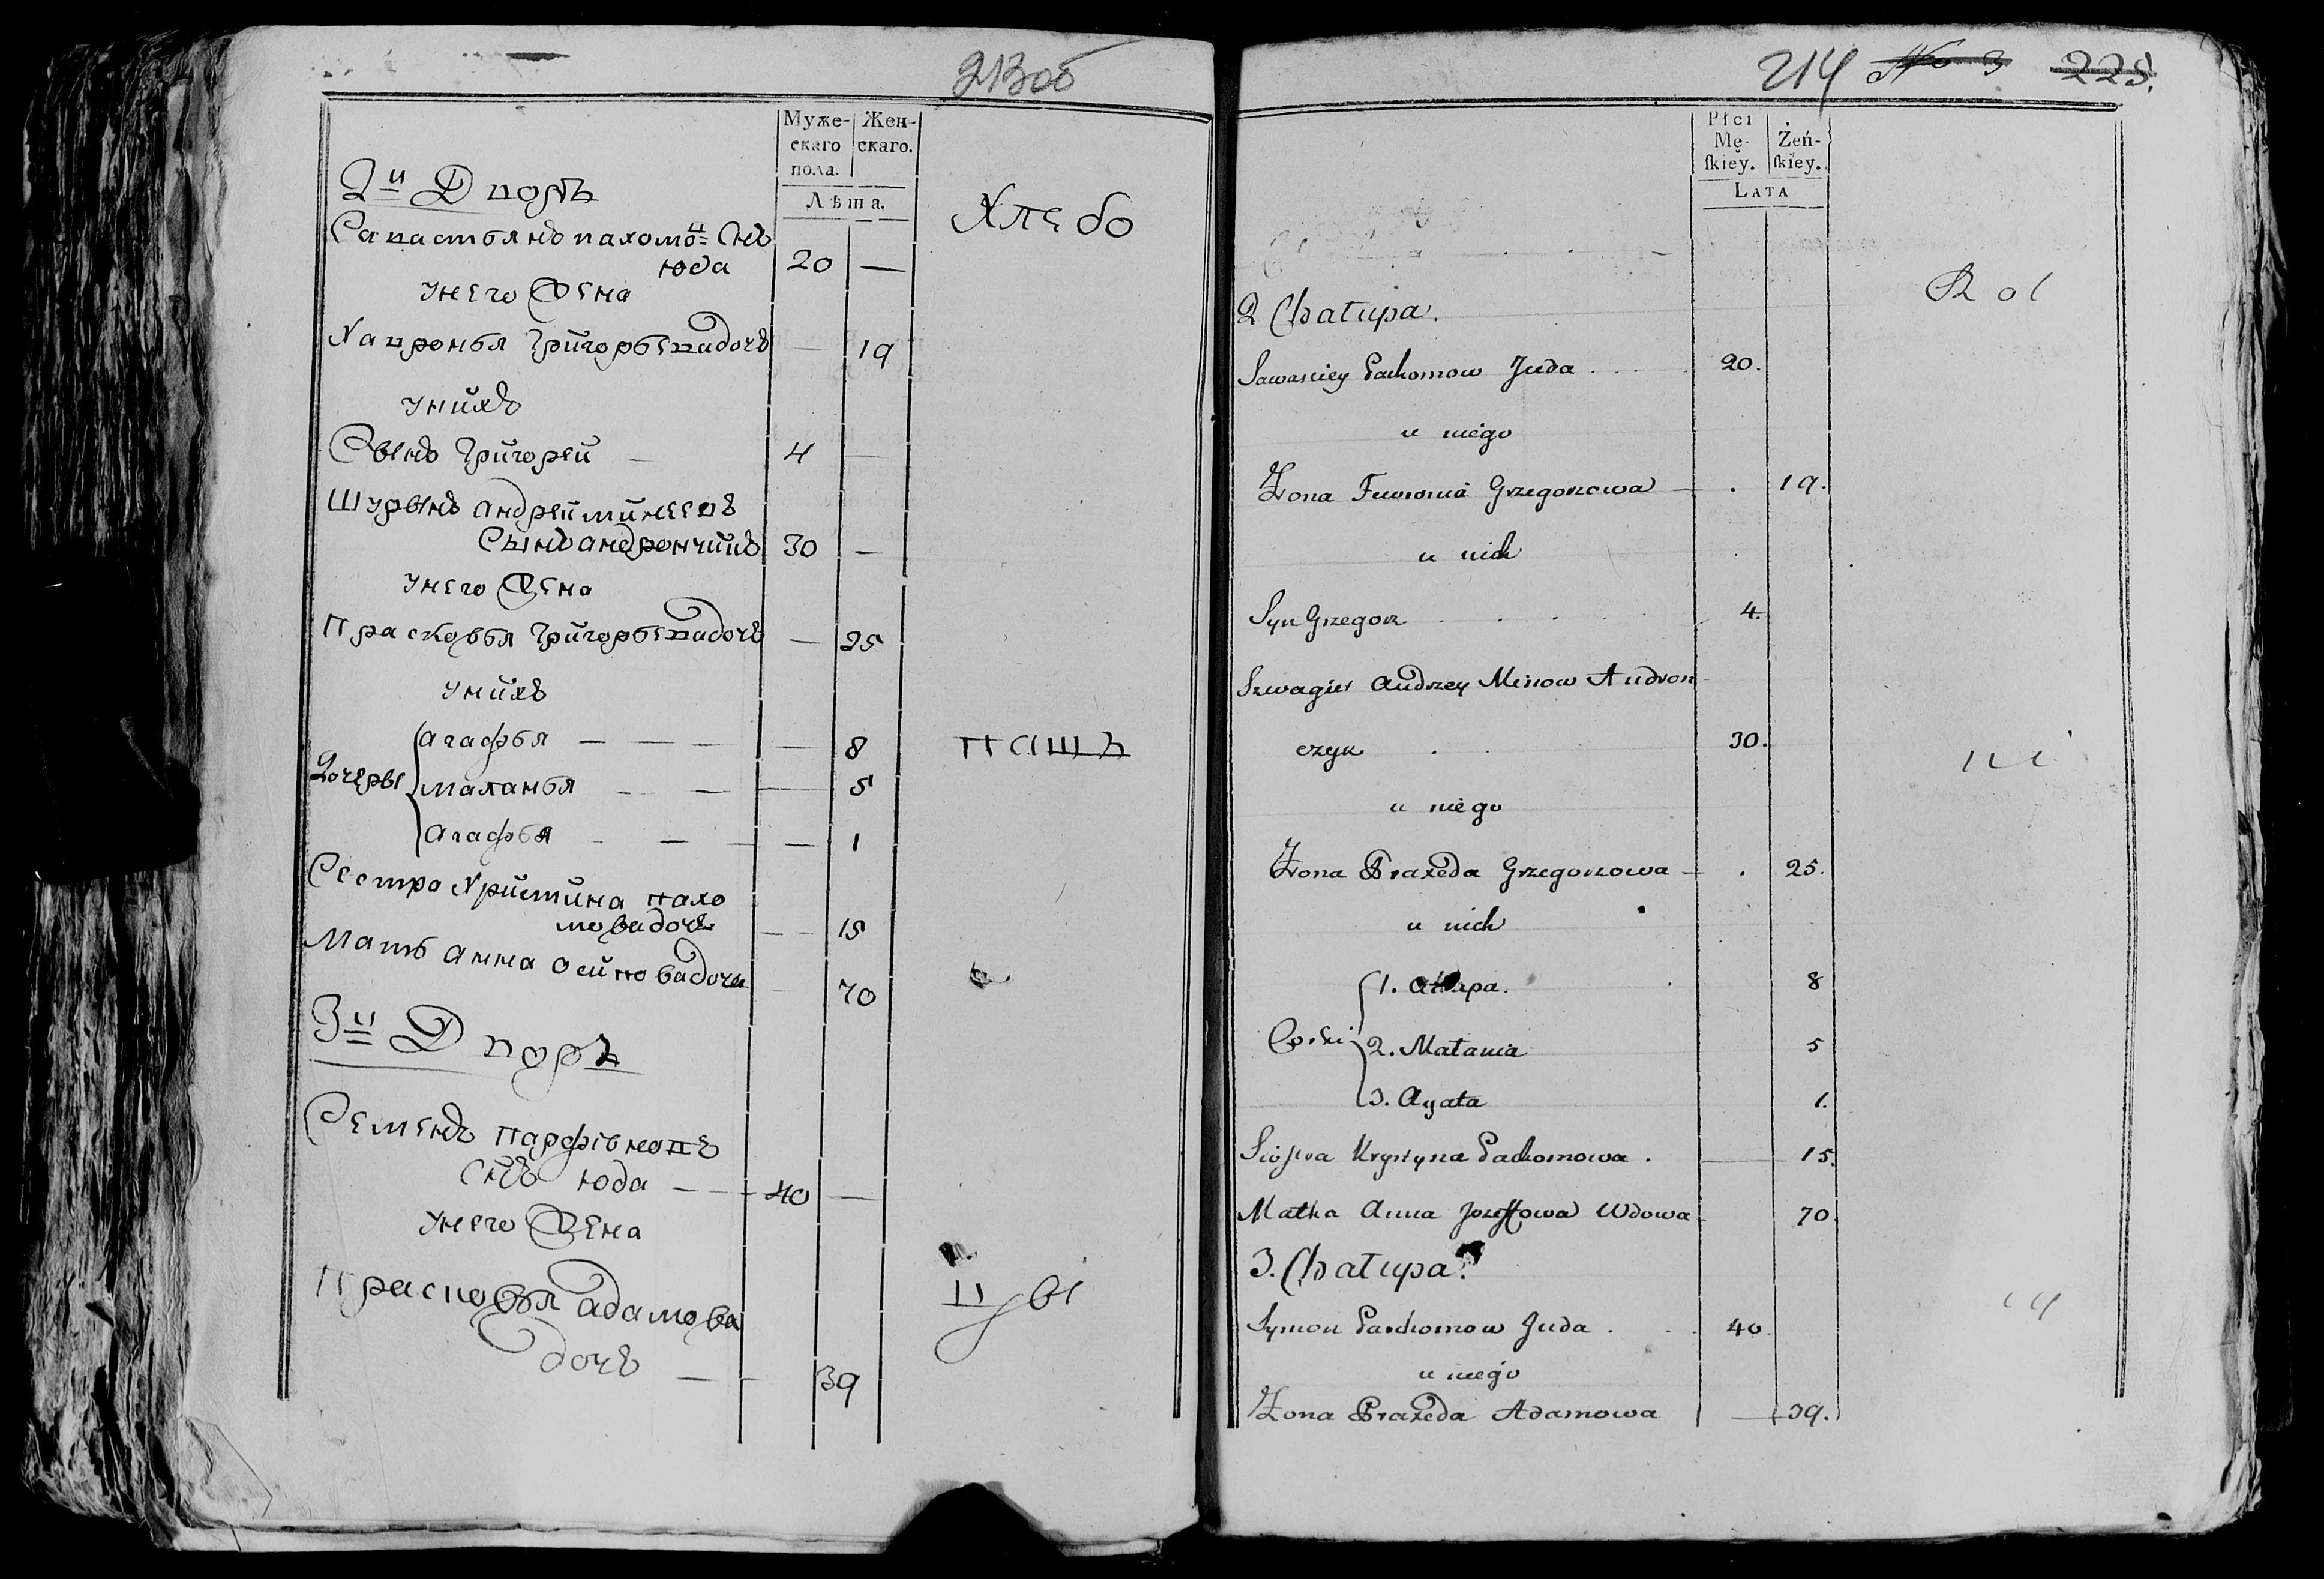 213об
Муже-
скаго
пола.
Жен-
скаго.
Лѣта.
2й Дворъ
Савастьянъ пахомо=въ Снъ
юда 20 —
Хлебо
унего Жена
Хавронья Григорьевадочь — 19
унихъ
Сынъ Григорей — 4 —
Шурынъ андрей минеевъ
Сынъ андрончикъ 30 —
унего Жена
Прасковья Григорьевадочь — 25
унихъ
Дочеры
агафья — — — — 8
маланья — — — 5
агафья — — — — 1
пашъ
Сестра Христина пахо
мовадочь — 15
Мать анна осиповадочь — 70
3й Дворъ
Семенъ парфѣновъ
Снъ юда — 40 —
унего Жена
Прасковья адамова
дочь — 39
цы
214 No 3 225.
Płci
Mę-
ſkiey.
Żeń-
ſkiey.
Lata
Rol
2 Chałupa.
Sawasciey Pachomow Juda . . . . 20.
u niego
Żona Fewronia Grzegorzowa — . 19.
u nich
Syn Grzegorz . . . . 4.
Szwagier Andrzey Minow Andron
czyk . . 30.
ni
u niego
Żona Praxeda Grzegorzowa — . 25.
u nich
Corki
1. 8
2. Małania 5
3. Agata 1.
Siostra Krystyna Pachomowa . — 15.
Matka Anna Jozeffowa Wdowa 70.
3. Chałupa.
Symon Parchomow Juda . . . 40.
u niego
Żona Praxeda Adamowa — 39.